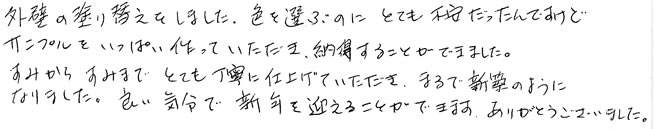 外壁の塗り替えをしました。色を選ぶのに とても 不安だったんですけど
サンプルを いっぱい 作って いただき、納得することができました。
すみから すみまで とても 丁寧に仕上げていただき、まるで 新築のように
なりました。良い 気分で 新年を迎えることができます。ありがとうございました。